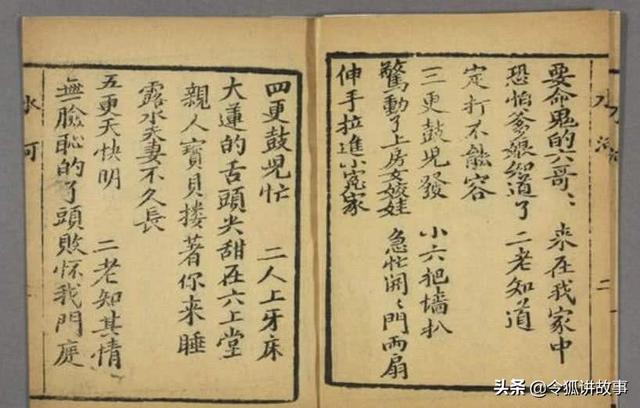 要命鬼的六哥〻 来在我家中
恐怕爹娘知道了 二老知道
定打不能容
三更鼓児發 小六把墻扒
驚動了上房女姣娃 急忙開〻門兩扇
伸手拉進小冤家
四更鼓児忙 二人上牙床
大蓮的舌頭尖甜在六上堂
親人寶貝搂著你来睡
露水夫妻不久長
五更天快明 二老知其情
無臉恥的了頭敗怀我門庭
水河
头条 @令狐讲故事